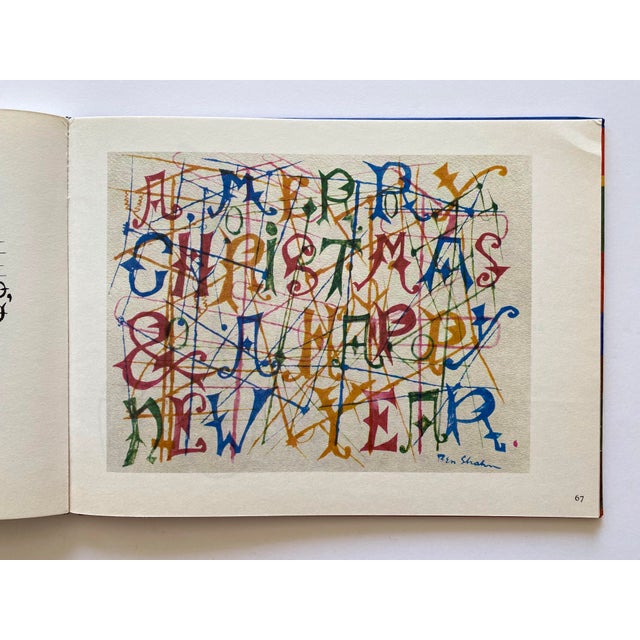 A MERRY
CHRISTMAS
& A HAPPY
NEW YEAR.
Ben Shahn
67